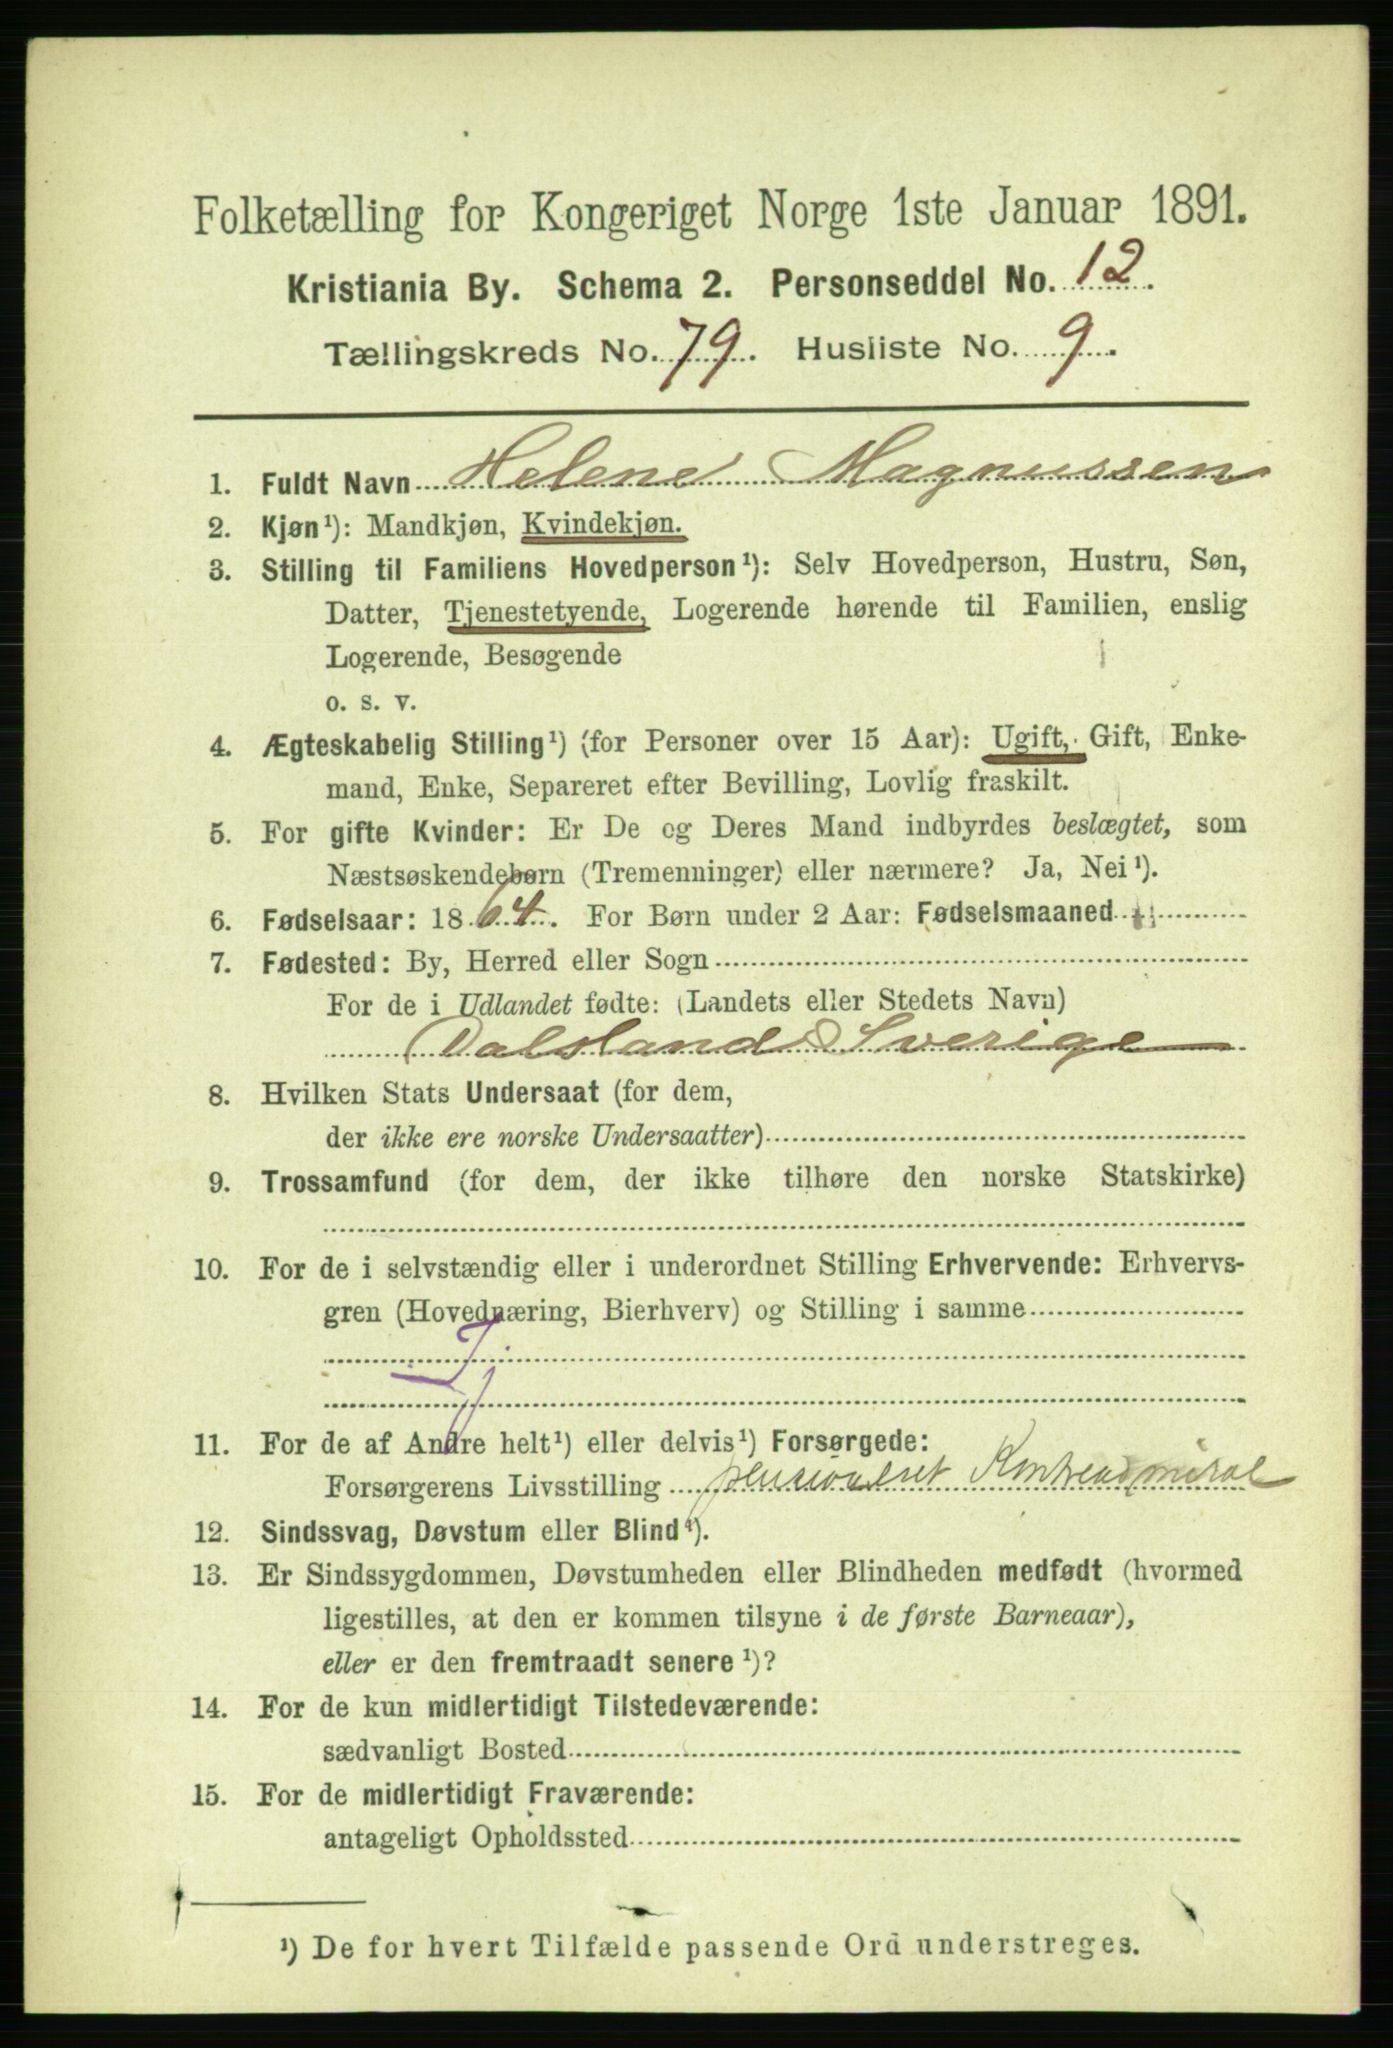 Folketælling for Kongeriget Norge 1ste Januar 1891.
Kristiania By. Schema 2. Personseddel No. 12.
Tællingskreds No. 79. Husliste No. 9.
1. Fuldt Navn Helene Magnussen
2. Kjøn¹): Mandkjøn, Kvindekjøn.
3. Stilling til Familiens Hovedperson¹): Selv Hovedperson, Hustru, Søn,
Datter, Tjenestetyende, Logerende hørende til Familien, enslig
Logerende, Besøgende
o. s. v.
4. Ægteskabelig Stilling¹) (for Personer over 15 Aar): Ugift, Gift, Enke-
mand, Enke, Separeret efter Bevilling, Lovlig fraskilt.
5. For gifte Kvinder: Er De og Deres Mand indbyrdes beslægtet, som
Næstsøskendebørn (Tremenninger) eller nærmere? Ja, Nei¹).
6. Fødselsaar: 1864. For Børn under 2 Aar: Fødselsmaaned
7. Fødested: By, Herred eller Sogn
For de i Udlandet fødte: (Landets eller Stedets Navn)
Dalsland Sverige
8. Hvilken Stats Undersaat (for dem,
der ikke ere norske Undersaatter)
9. Trossamfund (for dem, der ikke tilhøre den norske Statskirke)
10. For de i selvstændig eller i underordnet Stilling Erhvervende: Erhvervs-
gren (Hovednæring, Bierhverv) og Stilling i samme
Tj
11. For de af Andre helt¹) eller delvis¹) Forsørgede:
Forsørgerens Livsstilling pensioneret Kontreadmiral
12. Sindssvag, Døvstum eller Blind¹).
13. Er Sindssygdommen, Døvstumheden eller Blindheden medfødt (hvormed
ligestilles, at den er kommen tilsyne i de første Barneaar),
eller er den fremtraadt senere¹)?
14. For de kun midlertidigt Tilstedeværende:
sædvanligt Bosted
15. For de midlertidigt Fraværende:
antageligt Opholdssted
¹) De for hvert Tilfælde passende Ord understreges.